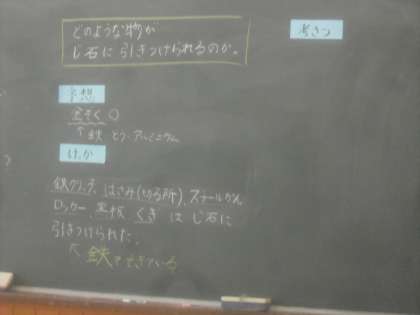 どのような物が
じ石に引きつけられるのか。
考さつ
予想
金ぞく○
↑鉄 どう アルミニウム
けっか
鉄クリップ、はさみ(切る所)、スチールかん
ロッカー、黒板、くぎ は じ石に
引きつけられた。
↖鉄でできている